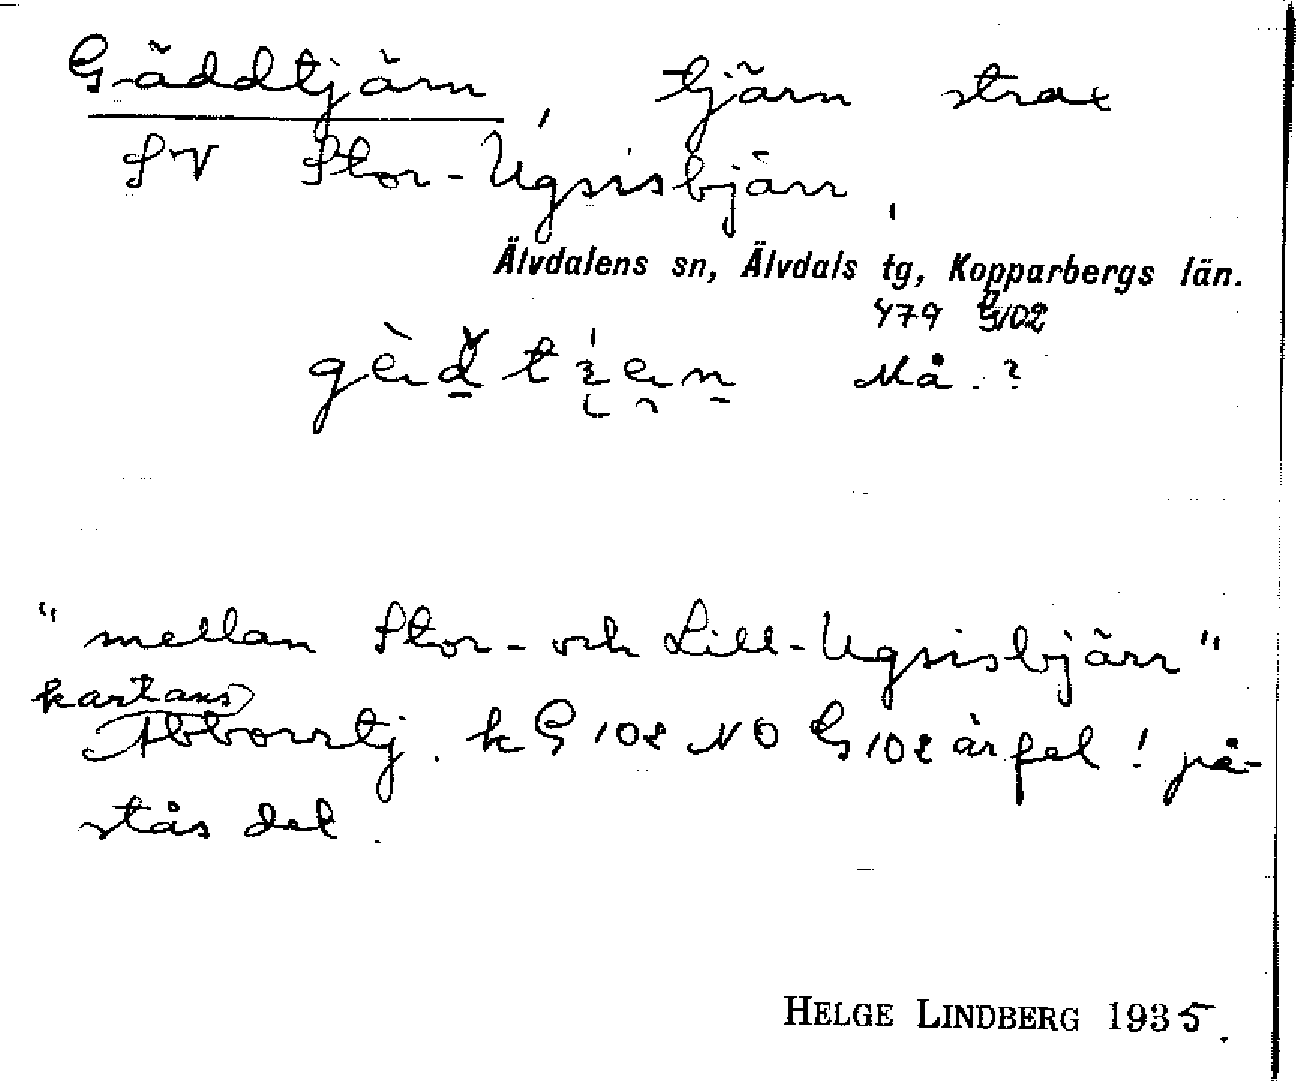 Gäddtjärn, tjärn strax
SV Stor-Ugsisbjärr,
Älvdalens sn, Älvdals tg, Kopparbergs län.
479 G102
Må.?
"mellan Stor- och Lill-Ugsisbjärr"
kartans
Abborrtj. k G 102 NO G 102 är fel! på-
stås det.
HELGE LINDBERG 1935.